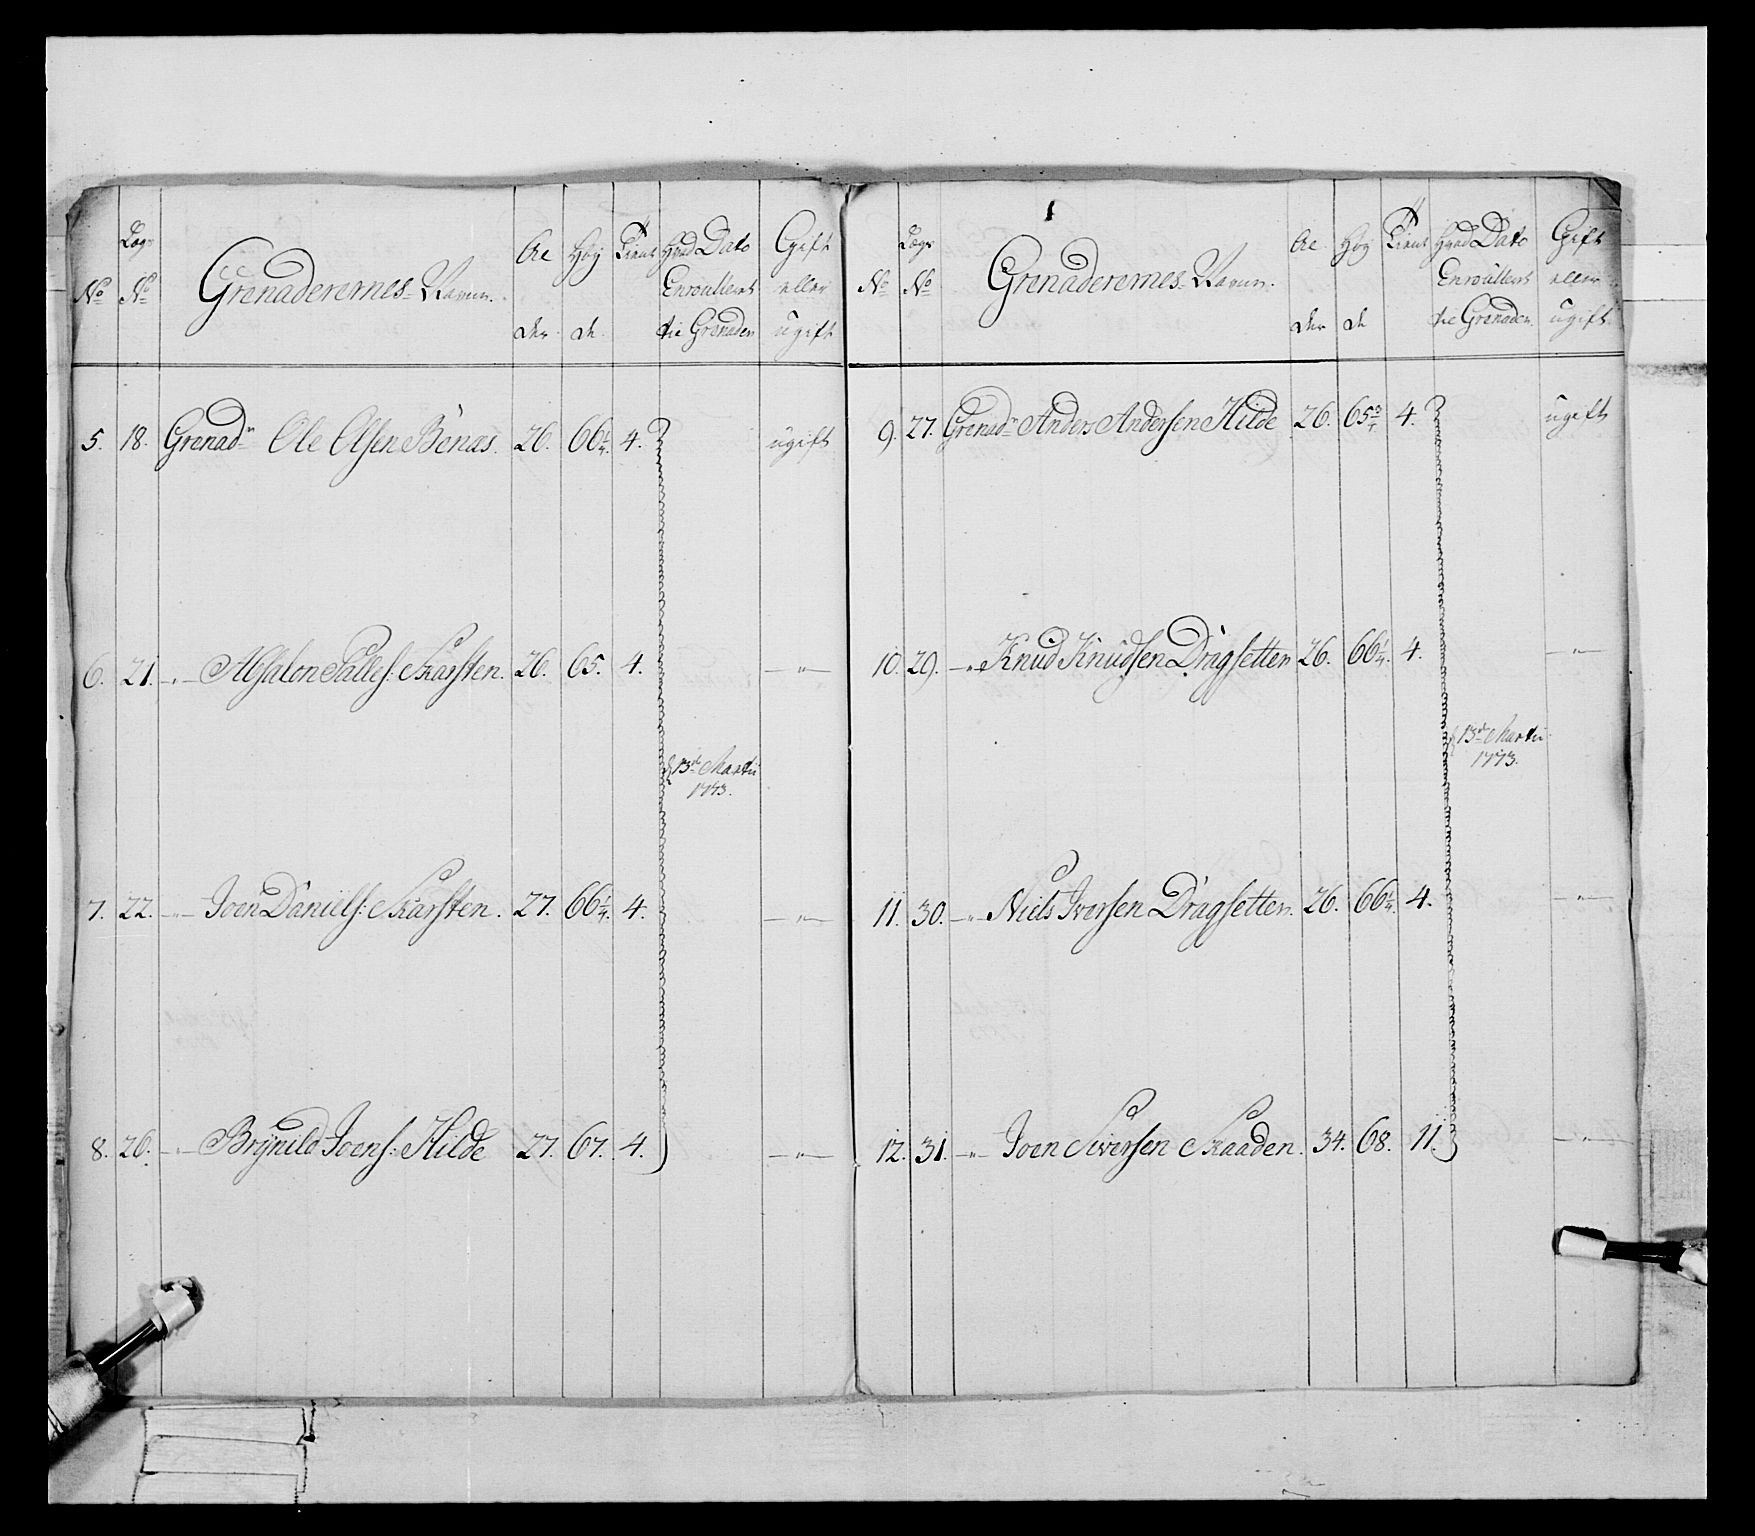 Lægs
No No Grenaderernes Navne. Al der Høy de Tient Hvad Dato Enroulleret die Grenader Gift eller ugift
5. 18. Grenadr Ole Olsen Bènæs. 26. 66 1/4. 4. ugift
6. 21. -"- Absalon Pallesː Skarsten. 26. 65. 4. -"-
13de Martii
1773.
7. 22. -"- Joen Danielsː Skarsten. 27. 66 1/4. 4. -"-
8. 26. -"- Brynild Joensː Hilde 27. 67. 4. -"-
1
Lægs
No No Grenaderernes Navne. Al der Høy de Tient Hvad Dato Enroulleret die Grenader. Gift eller ugift
9. 27. Grenadr Anders Andersen Hilde 26. 65 3/4. 4. ugift
10. 29. -"- Knud Knudsen Dragsetten 26. 66 1/4. 4. -"-
13de Martii
1773.
11. 30. -"- Niels Iversen Dragsetten. 26. 66 1/4. 4. -"-
12. 31. -"- Joen Siversen Skaaden. 34. 68. 11. -"-